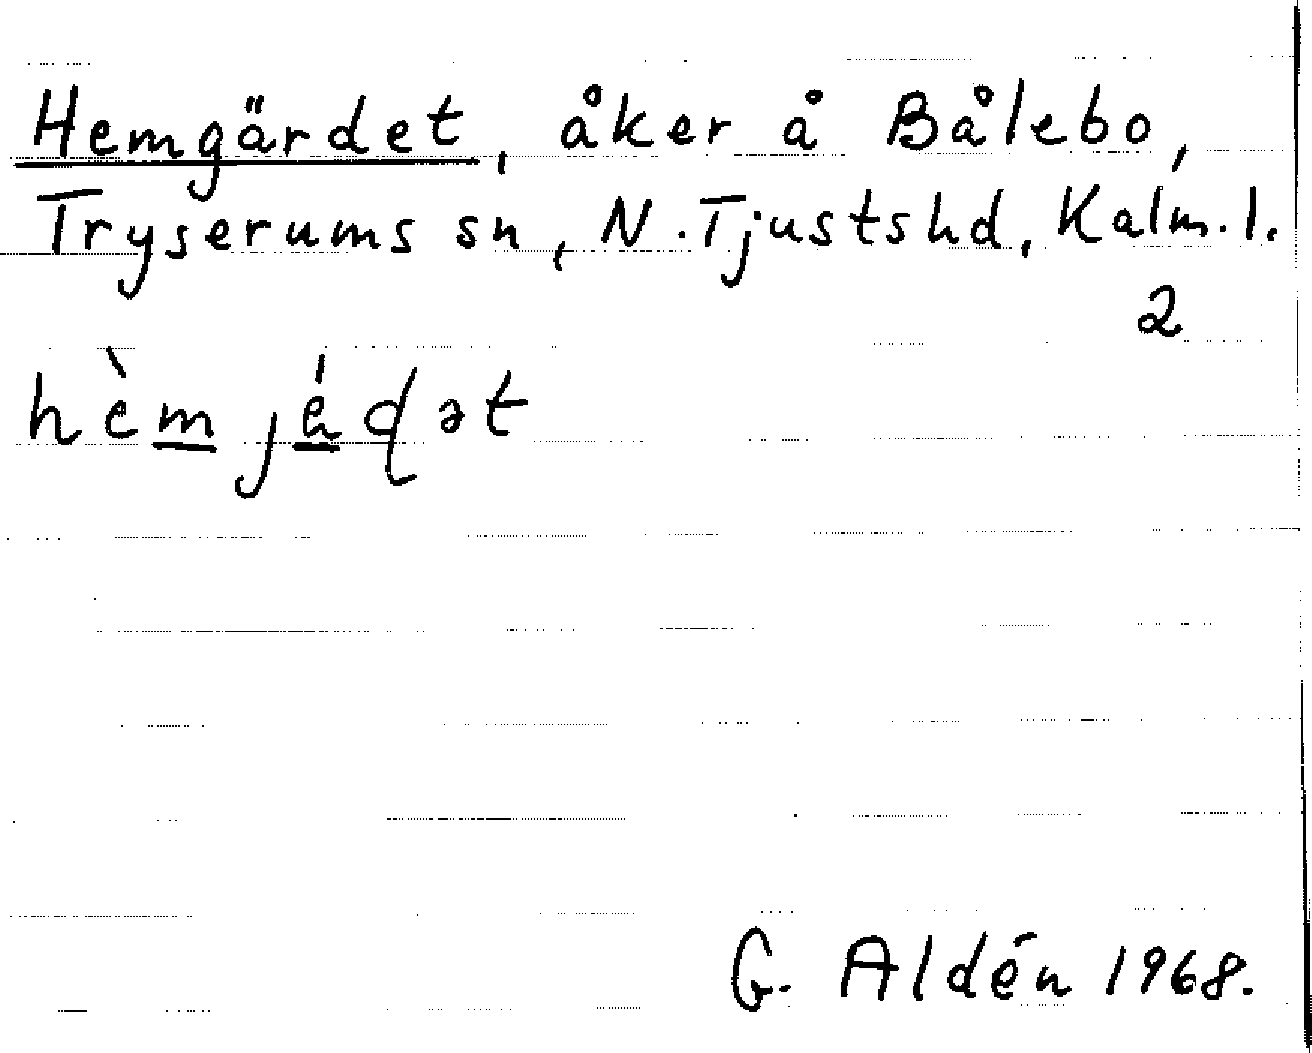 Hemgärdet, åker å Bålebo,
Tryserums sn, N. Tjustshd, Kalm. l.
2
hèmjédət
G. Aldén 1968.